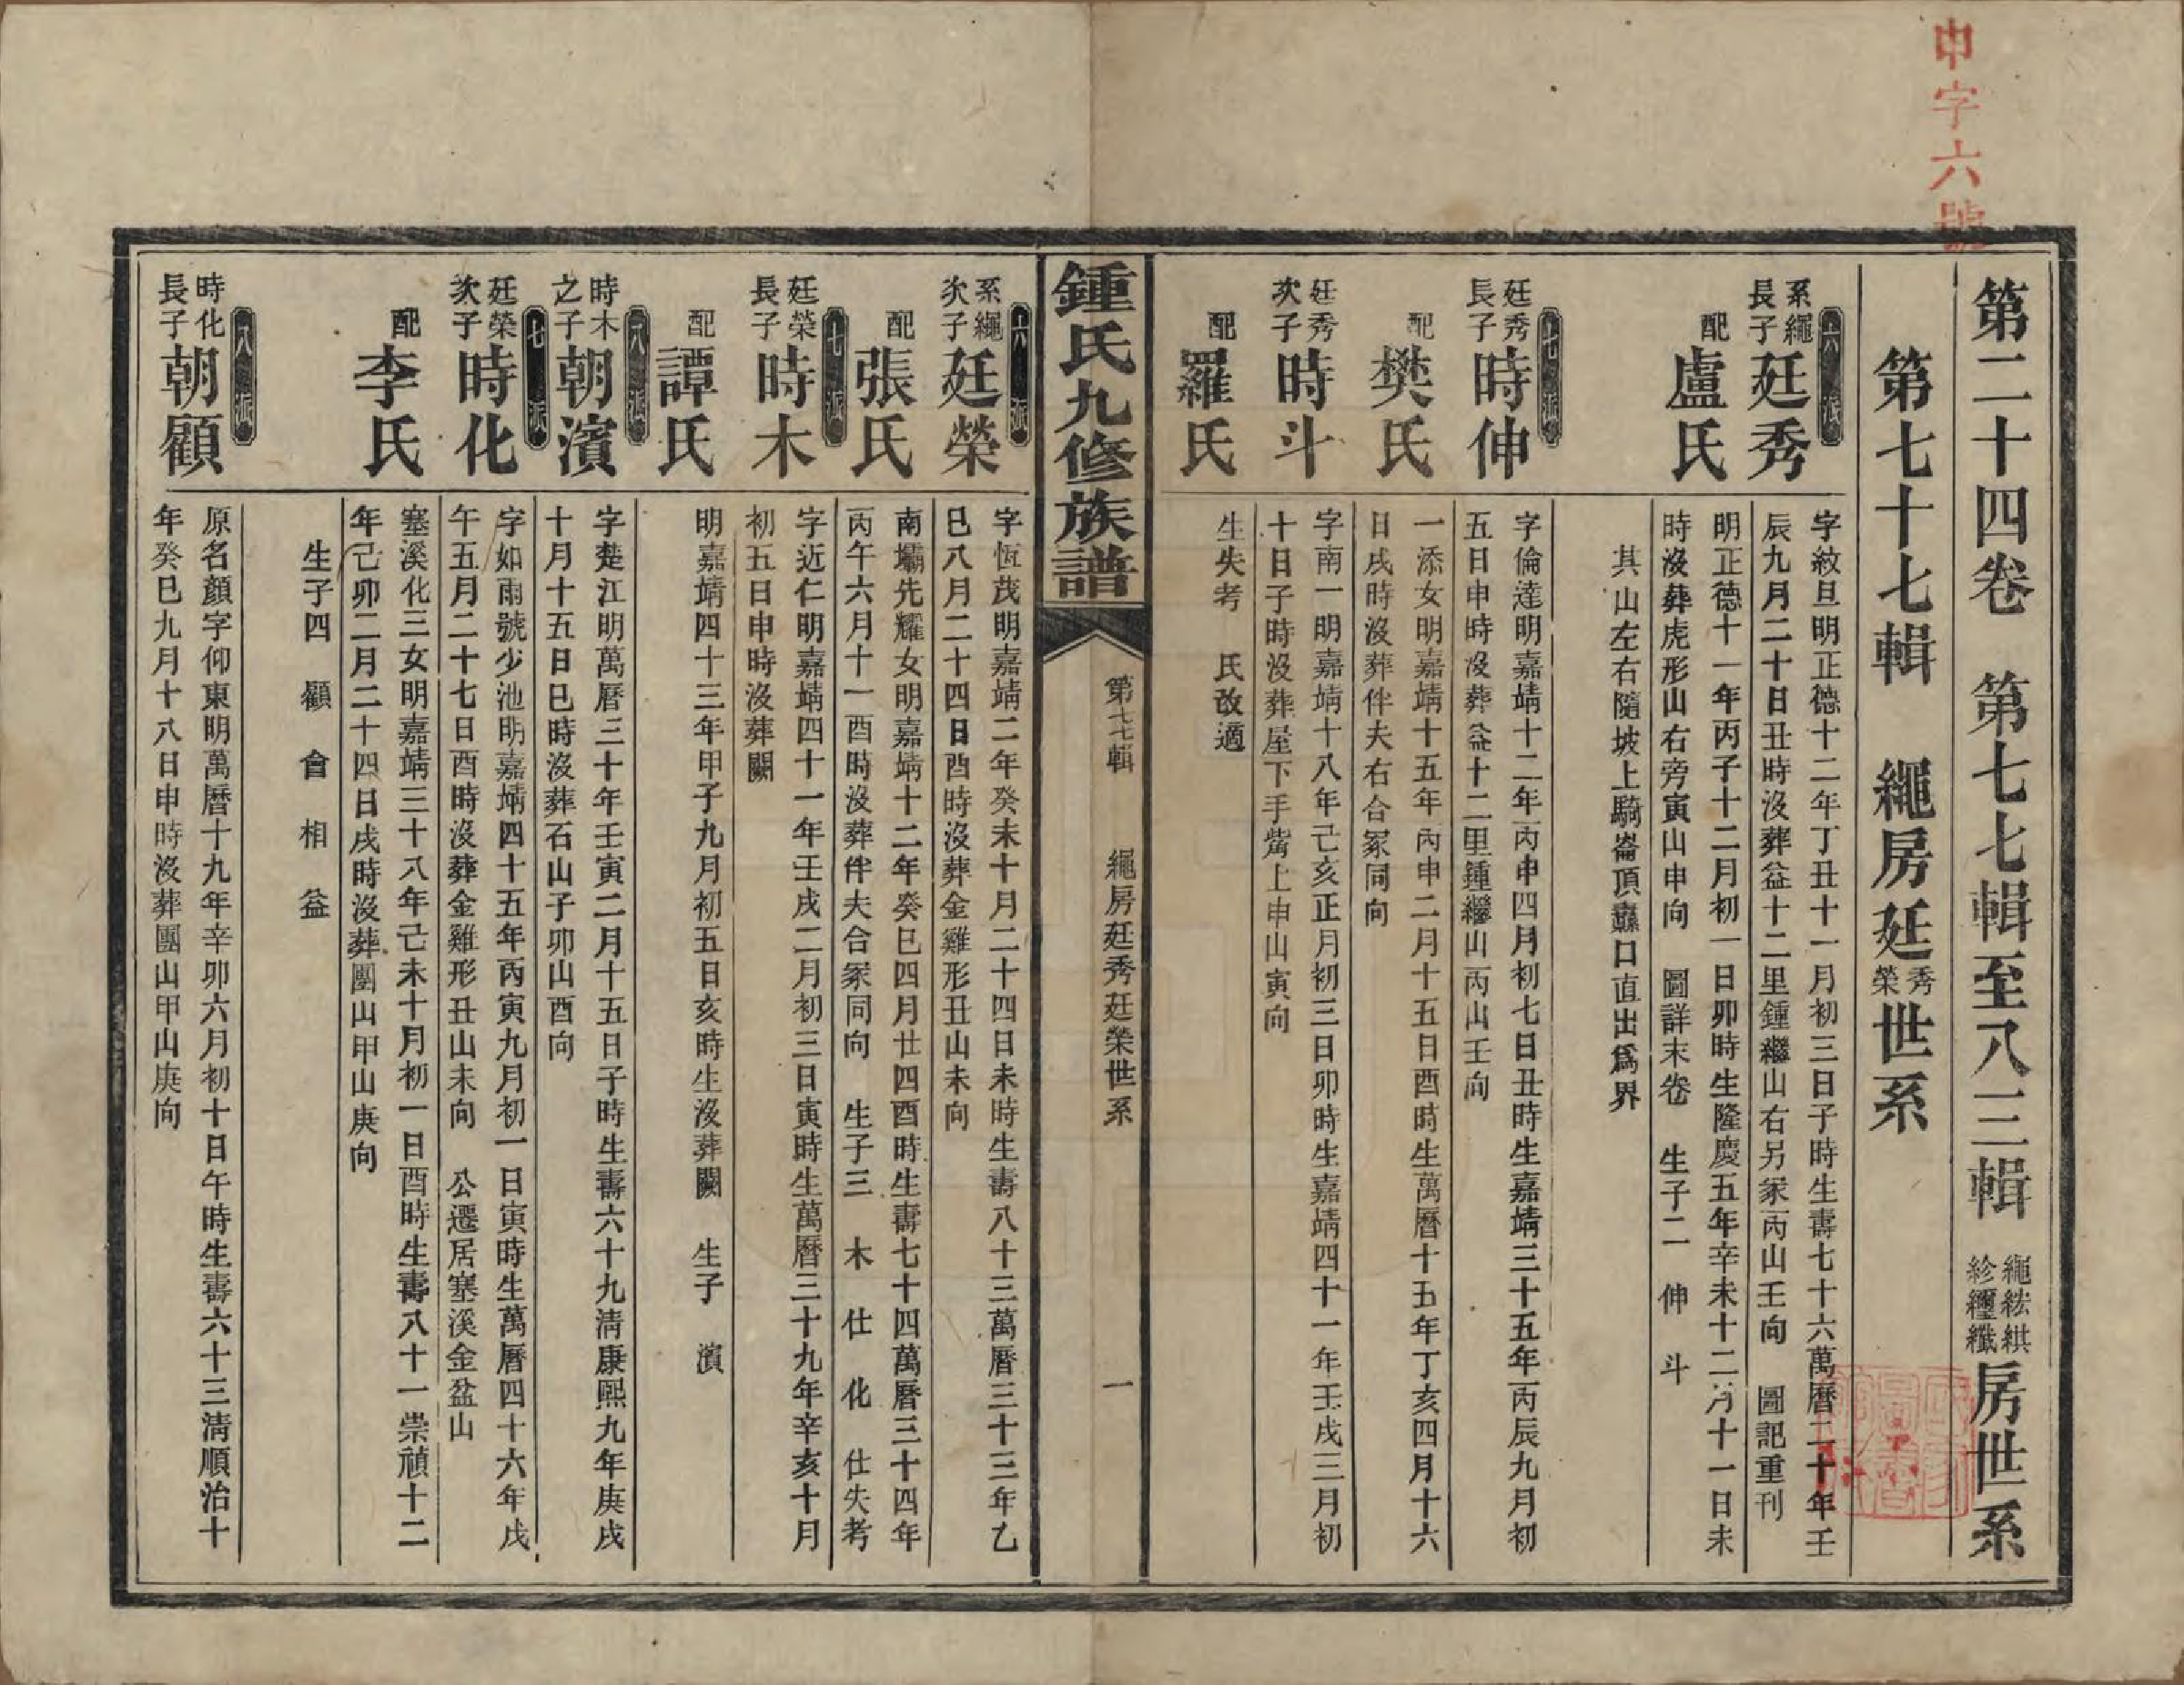 申字六號
第二十四卷　第七七輯至八三輯　繩紘紲紾纙纖房世系
第七十七輯　繩房廷秀榮世系
六派
系繩長子廷秀
字紋旦明正德十二年丁丑十一月初三日子時生壽七十六萬曆二十年壬
辰九月二十日丑時沒葬益十二里鍾繼山右另冢丙山壬向　圖記重刊
配盧氏
明正德十一年丙子十二月初一日卯時生隆慶五年辛未十二月十一日未
時沒葬虎形山右旁寅山申向　圖詳末卷　生子二　伸　斗
其山左右隨坡上騎崙頂驫口直出爲界
七派
廷秀長子時伸
字倫達明嘉靖十二年丙申四月初七日丑時生嘉靖三十五年丙辰九月初
五日申時沒葬益十二里鍾繼山丙山壬向
配樊氏
一添女明嘉靖十五年丙申二月十五日酉時生萬曆十五年丁亥四月十六
日戌時沒葬伴夫右合冢同向
廷秀次子時斗
字南一明嘉靖十八年己亥正月初三日卯時生嘉靖四十一年壬戌三月初
十日子時沒葬屋下手觜上申山寅向
配羅氏
生失考　氏改適
鍾氏九修族譜
第七七輯　繩房廷秀廷榮世系　一
六派
系繩次子廷榮
字恆茂明嘉靖二年癸未十月二十四日未時生壽八十三萬曆三十三年乙
巳八月二十四日酉時沒葬金雞形丑山未向
配張氏
南壩先耀女明嘉靖十二年癸巳四月廿四酉時生壽七十四萬曆三十四年
丙午六月十一酉時沒葬伴夫合冢同向　生子三　木　仕　化　仕失考
七派
廷榮長子時木
字近仁明嘉靖四十一年壬戌二月初三日寅時生萬曆三十九年辛亥十月
初五日申時沒葬闕
配譚氏
明嘉靖四十三年甲子九月初五日亥時生沒葬闕　生子　濱
八派
時木之子朝濱
字楚江明萬曆三十年壬寅二月十五日子時生壽六十九清康熙九年庚戌
十月十五日巳時沒葬石山子卯山酉向
七派
廷榮次子時化
字如雨號少池明嘉靖四十五年丙寅九月初一日寅時生萬曆四十六年戊
午五月二十七日酉時沒葬金雞形丑山未向　公遷居塞溪金盆山
配李氏
塞溪化三女明嘉靖三十八年己未十月初一日酉時生壽八十一崇禎十二
年己卯二月二十四日戌時沒葬團山甲山庚向
生子四　顧　會　相　益
八派
時化長子朝顧
原名顏字仰東明萬曆十九年辛卯六月初十日午時生壽六十三清順治十
年癸巳九月十八日申時沒葬團山甲山庚向